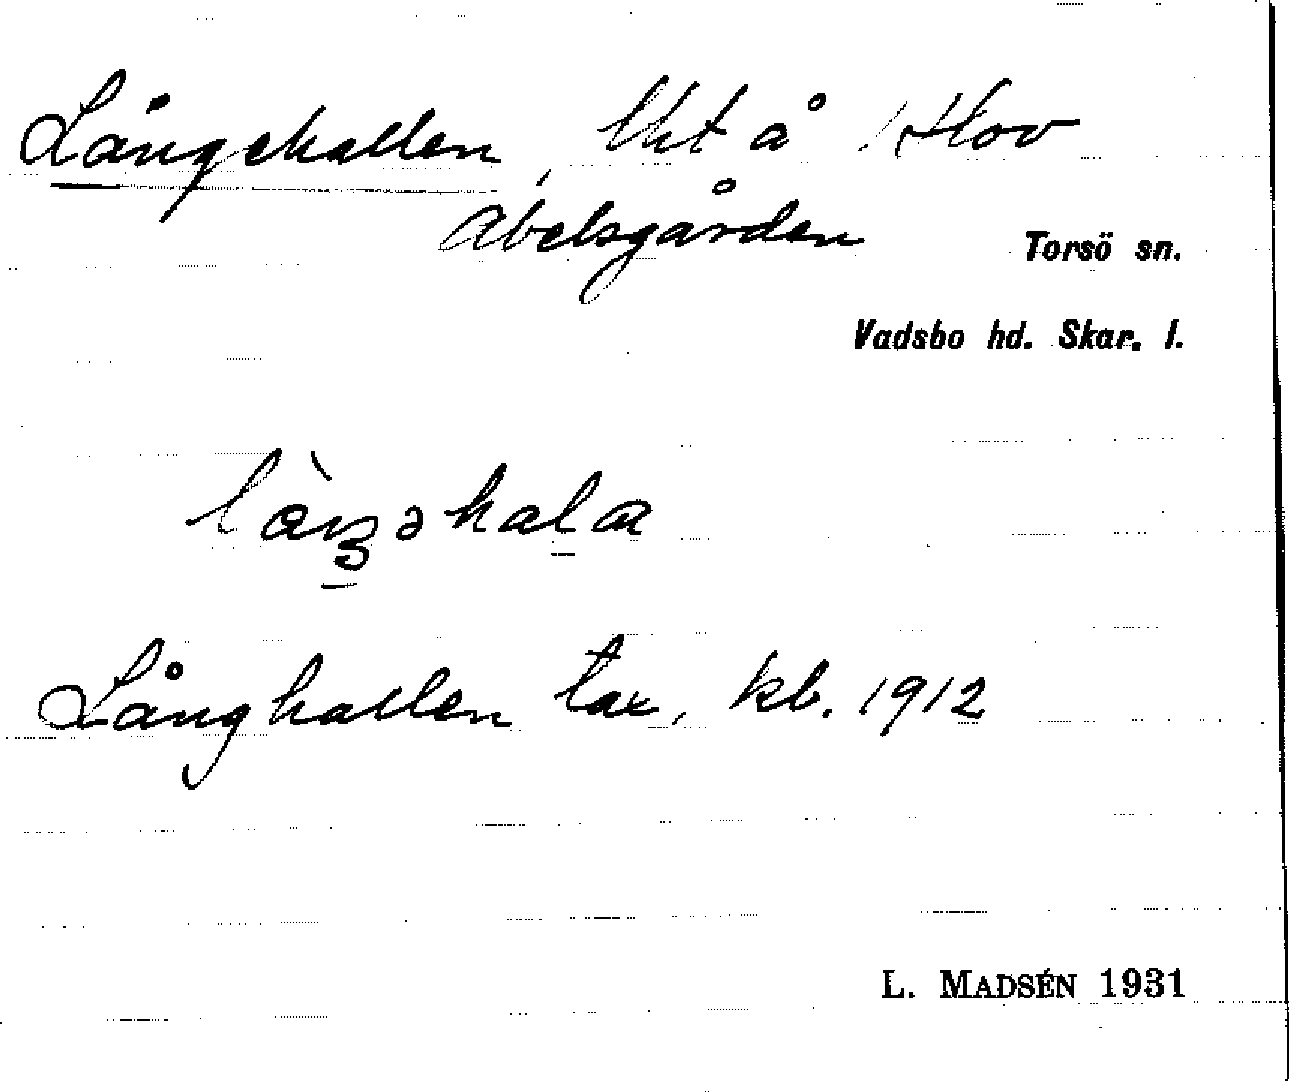 Långehallen, lht å Hov
Abelsgården
Torsö sn.
Vadsbo hd. Skar. l.
Långhallen tax. kb. 1912
L. MADSÉN 1931